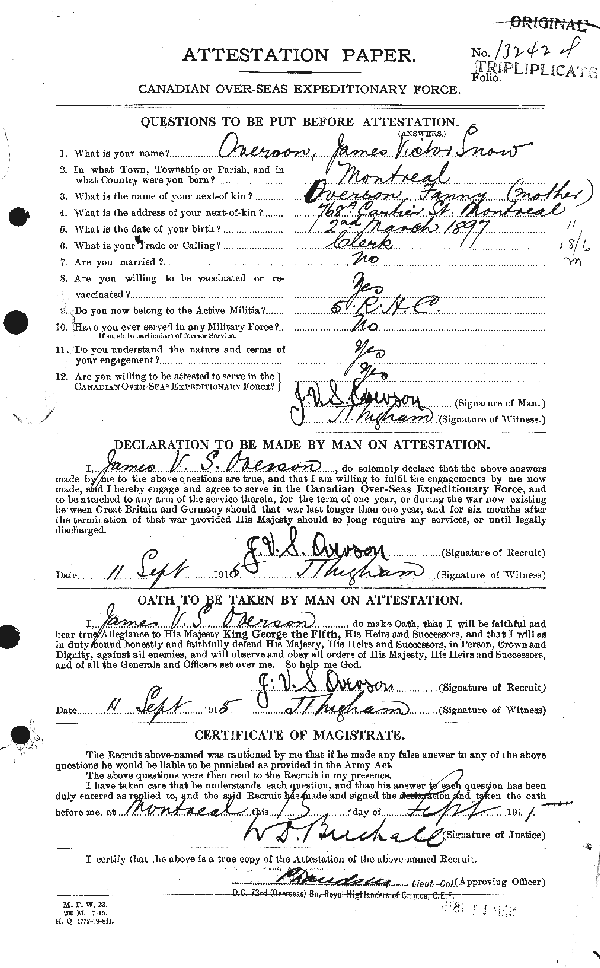 ORIGINAL
ATTESTATION PAPER.
No. 132424
TRIPLIPLICATE
Folio.
CANADIAN OVER-SEAS EXPEDITIONARY FORCE.
QUESTIONS TO BE PUT BEFORE ATTESTATION.
(ANSWERS.)
1. What is your name? Overson, James Victor Snow
2. In what Town, Township or Parish, and in
what Country were you born? Montreal
3. What is the name of your next-of-kin? Overson, Fanny (mother)
4. What is the address of your next-of-kin? 768 Cartier St. Montreal
5. What is the date of your birth? 2nd March 1897
6. What is your Trade or Calling? Clerk
7. Are you married? No
8. Are you willing to be vaccinated or re-
vaccinated? Yes
9. Do you now belong to the Active Militia? 5 R.H.C.
10. Have you ever served in any Military Force? No
If so, state particulars of former Service.
11. Do you understand the nature and terms of
your engagement? Yes
12. Are you willing to be attested to serve in the
CANADIAN OVER-SEAS EXPEDITIONARY FORCE? Yes
J.V.S. Overson (Signature of Man.)
(Signature of Witness.)
DECLARATION TO BE MADE BY MAN ON ATTESTATION.
I, James V. S. Overson, do solemnly declare that the above answers
made by me to the above questions are true, and that I am willing to fulfil the engagements by me now
made, and I hereby engage and agree to serve in the Canadian Over-Seas Expeditionary Force, and
to be attached to any arm of the service therein, for the term of one year, or during the war now existing
between Great Britain and Germany should that war last longer than one year, and for six months after
the termination of that war provided His Majesty should so long require my services, or until legally
discharged.
J.V.S. Overson (Signature of Recruit)
Date 11 Sept 1915 (Signature of Witness)
OATH TO BE TAKEN BY MAN ON ATTESTATION.
I, James V. S. Overson, do make Oath, that I will be faithful and
bear true Allegiance to His Majesty King George the Fifth, His Heirs and Successors, and that I will as
in duty bound honestly and faithfully defend His Majesty, His Heirs and Successors, in Person, Crown and
Dignity, against all enemies, and will observe and obey all orders of His Majesty, His Heirs and Successors,
and of all the Generals and Officers set over me. So help me God.
J.V.S. Overson (Signature of Recruit)
Date 11 Sept 1915 (Signature of Witness)
CERTIFICATE OF MAGISTRATE.
The Recruit above-named was cautioned by me that if he made any false answer to any of the above
questions he would be liable to be punished as provided in the Army Act.
The above questions were then read to the Recruit in my presence.
I have taken care that he understands each question, and that his answer to each question has been
duly entered as replied to, and the said Recruit has made and signed the declaration and taken the oath
before me, at Montreal this 15 day of Sept 1915
(Signature of Justice)
I certify that the above is a true copy of the Attestation of the above named Recruit.
Lieut-Col (Approving Officer)
O.C. 73rd (Overseas) Bn. Royal Highlanders of Canada, C.E.F.
M. F. W. 23.
H. Q. 1772-39-841.